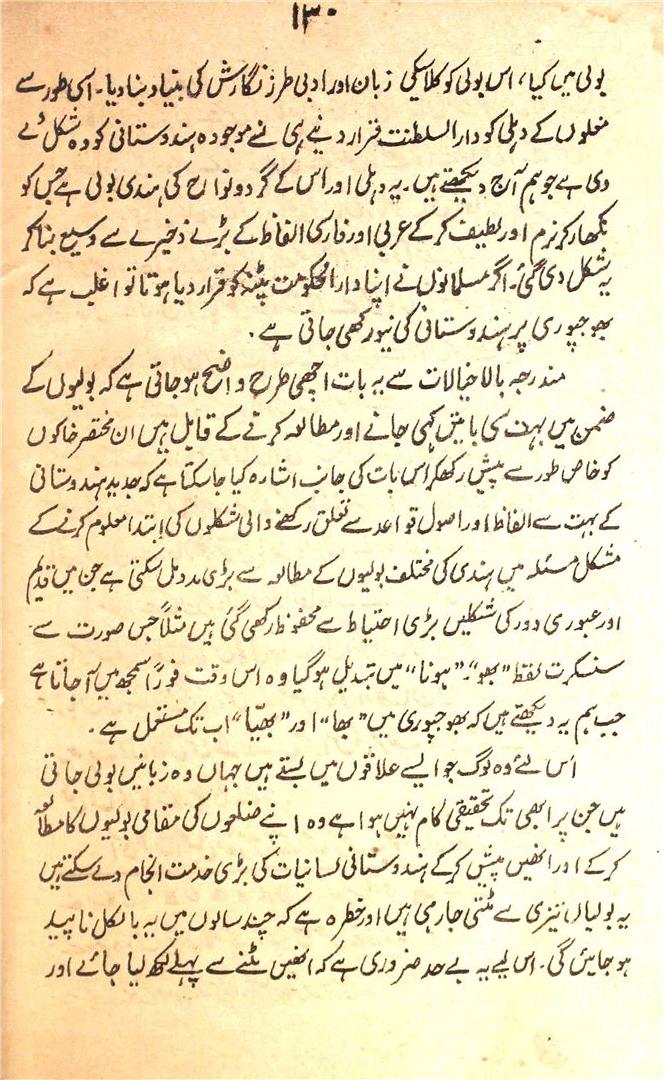 ۱۳۰
بولی میں کیا، اس بولی کو کلاسیکی زبان اور ادبی طرز نگارش کی بنیاد بنا دیا۔ اسی طور سے
مغلوں کے دہلی کو دارالسلطنت قرار دینے ہی نے موجودہ ہندوستانی کو وہ شکل دے
دی ہے جو ہم آج دیکھتے ہیں۔ یہ دہلی اور اس کے گرد و نواح کی ہندی بولی ہے جس کو
نکھار کر نرم اور لطیف کر کے عربی اور فارسی الفاظ کے بڑے ذخیرے سے وسیع بنا کر
یہ شکل دی گئی۔ اگر مسلمانوں نے اپنا دارالحکومت پٹنہ کو قرار دیا ہوتا تو اغلب ہے کہ
بھوجپوری پر ہندوستانی کی نیو رکھی جاتی ہے۔
مندرجہ بالا خیالات سے یہ بات اچھی طرح واضح ہو جاتی ہے کہ بولیوں کے
ضمن میں بہت سی باتیں کہی جانے اور مطالعہ کرنے کے قابل ہیں ان مختصر خاکوں
کو خاص طور سے پیش رکھ کر اس بات کی جانب اشارہ کیا جا سکتا ہے کہ جدید ہندوستانی
کے بہت سے الفاظ اور اصول قواعد سے تعلق رکھنے والی شکلوں کی ابتدا معلوم کرنے کے
مشکل مسئلہ میں ہندی کی مختلف بولیوں کے مطالعہ سے بڑی مدد مل سکتی ہے جن میں قدیم
اور عبوری دور کی شکلیں بڑی احتیاط سے محفوظ رکھی گئی ہیں مثلاً جس صورت سے
سنسکرت لفظ "بھو"۔ "ہونا" میں تبدیل ہو گیا وہ اس وقت فوراً سمجھ میں آ جاتا ہے
جب ہم یہ دیکھتے ہیں کہ بھوجپوری میں "بھا" اور "بھیّا" اب تک مستعمل ہے۔
اس لئے وہ لوگ جو ایسے علاقوں میں بستے ہیں جہاں وہ زبانیں بولی جاتی
ہیں جن پر ابھی تک تحقیقی کام نہیں ہوا ہے وہ اپنے ضلعوں کی مقامی بولیوں کا مطالعہ
کر کے اور انھیں پیش کر کے ہندوستانی لسانیات کی بڑی خدمت انجام دے سکتے ہیں
یہ بولیاں تیزی سے مٹتی جا رہی ہیں اور خطرہ ہے کہ چند سالوں میں یہ بالکل ناپید
ہو جائیں گی۔ اس لیے یہ بے حد ضروری ہے کہ انھیں مٹنے سے پہلے لکھ لیا جائے اور